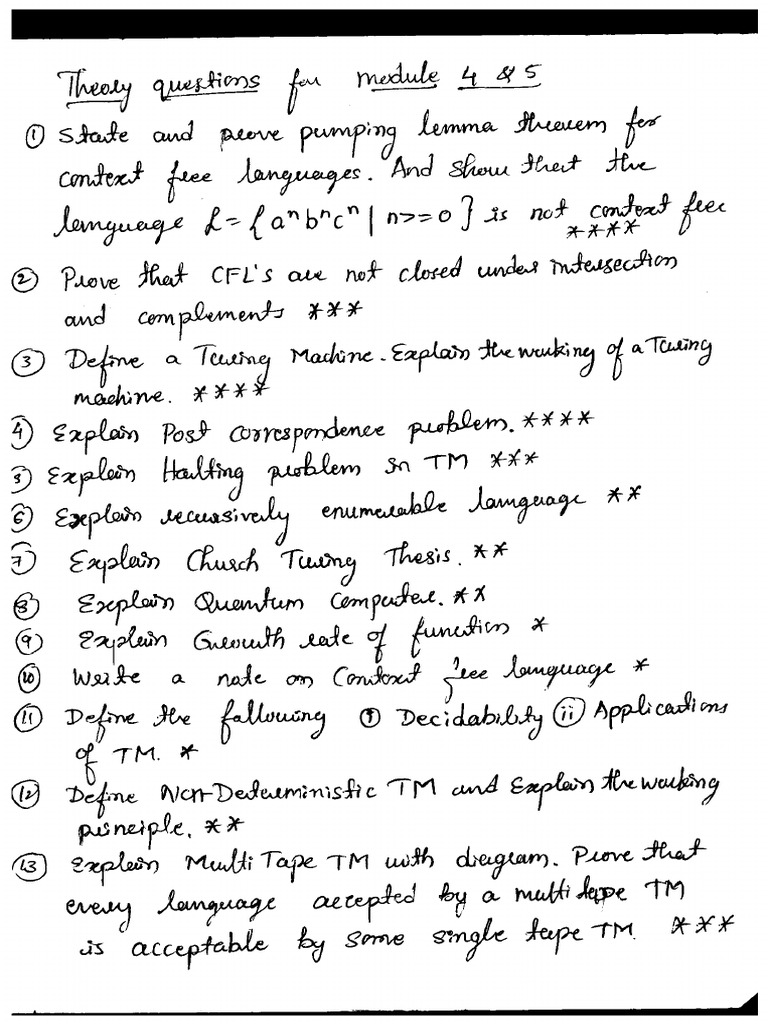 Theory questions for module 4 & 5
① State and prove pumping lemma theorem for
context free languages. And show that the
language L = { aⁿ bⁿ cⁿ | n>=0 } is not context free
****
② Prove that CFL's are not closed under intersection
and complements ***
③ Define a Turing Machine. Explain the working of a Turing
machine. ****
④ Explain Post correspondence problem. ****
⑤ Explain Halting problem in TM ***
⑥ Explain recursively enumerable language **
⑦ Explain Church Turing Thesis. **
⑧ Explain Quantum Computer. **
⑨ Explain Growth rate of function *
⑩ Write a note on Context free language *
⑪ Define the following ① Decidability ⓘⓘ Applications
of TM. *
⑫ Define Non-Deterministic TM and Explain the working
principle. **
⑬ Explain Multi Tape TM with diagram. Prove that
every language accepted by a multi tape TM
is acceptable by some single tape TM. ***